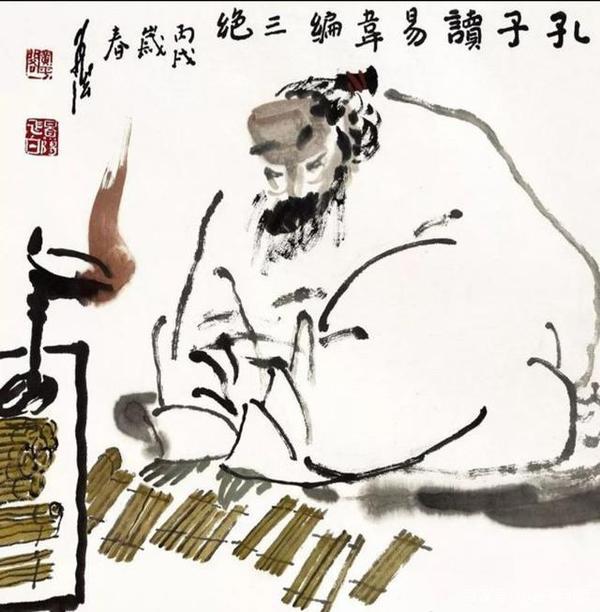 孔子讀易韋編三絶
丙戌
歲
春